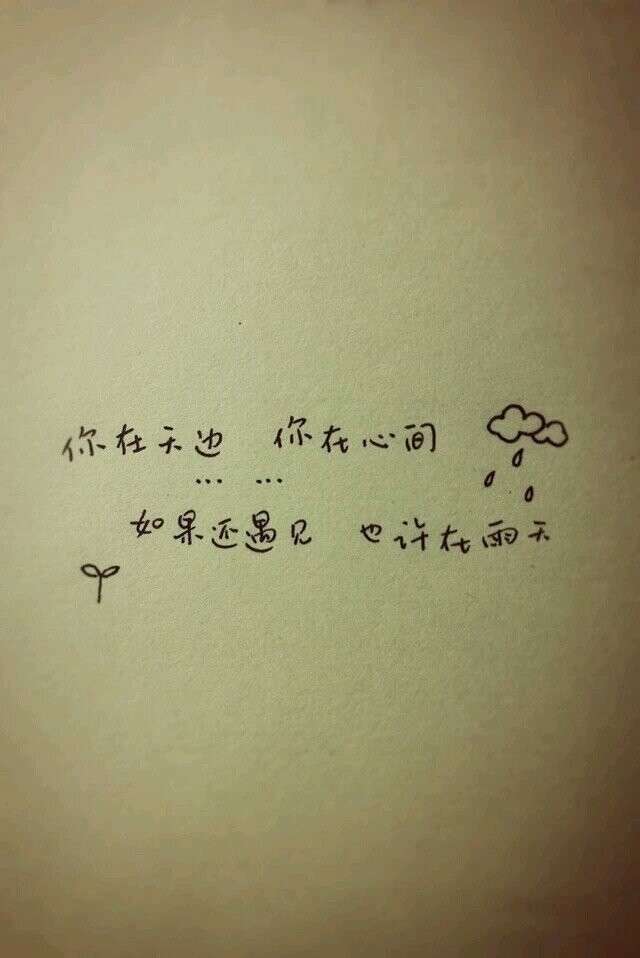 你在天边 你在心间
… …
如果还遇见 也许在雨天